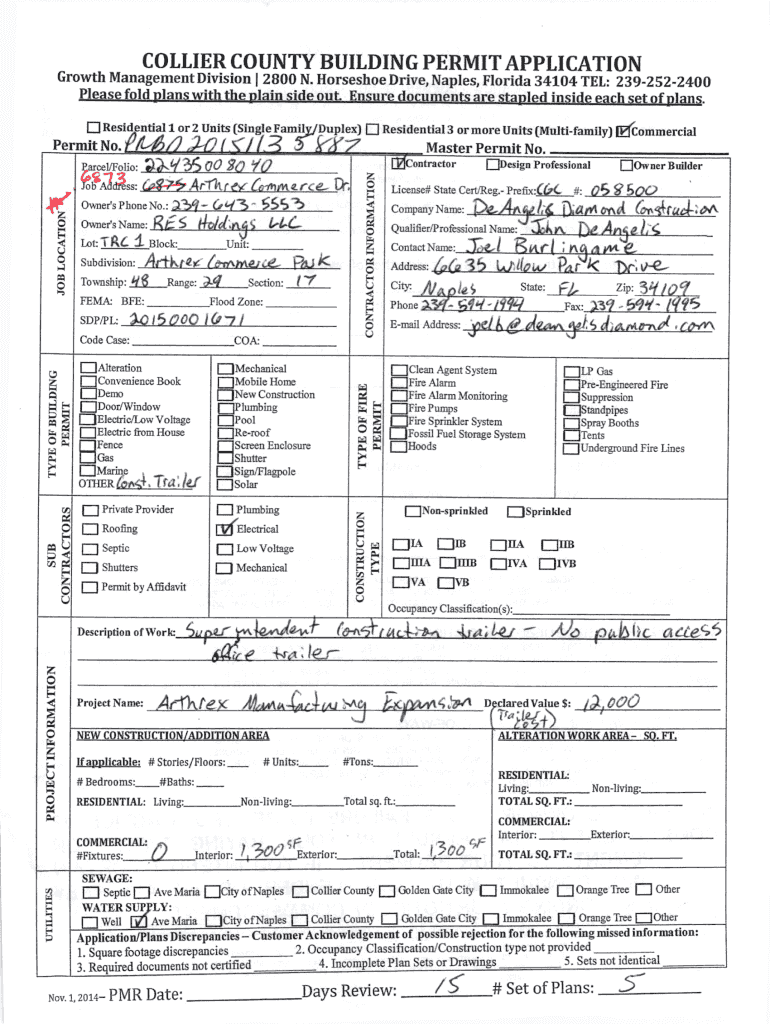 COLLIER COUNTY BUILDING PERMIT APPLICATION
Growth Management Division | 2800 N. Horseshoe Drive, Naples, Florida 34104 TEL: 239-252-2400
Please fold plans with the plain side out. Ensure documents are stapled inside each set of plans.
Residential 1 or 2 Units (Single Family/Duplex) Residential 3 or more Units (Multi-family) Commercial
Permit No. PRBD20151135887 Master Permit No.
JOB LOCATION
Parcel/Folio: 22435008040
6873
Job Address: 6875 Arthrex Commerce Dr.
Owner's Phone No.: 239-643-5553
Owner's Name: RES Holdings LLC
Lot: TRC 1 Block: Unit:
Subdivision: Arthrex Commerce Park
Township: 48 Range: 29 Section: 17
FEMA: BFE: Flood Zone:
SDP/PL: 20150001671
Code Case: COA:
CONTRACTOR INFORMATION
Contractor Design Professional Owner Builder
License# State Cert/Reg.- Prefix: CGC #: 058500
Company Name: DeAngelis Diamond Construction
Qualifier/Professional Name: John DeAngelis
Contact Name: Joel Burlingame
Address: 6635 Willow Park Drive
City: Naples State: FL Zip: 34109
Phone 239-594-1994 Fax: 239-594-1995
E-mail Address: joelb@deangelisdiamond.com
TYPE OF BUILDING PERMIT
Alteration
Convenience Book
Demo
Door/Window
Electric/Low Voltage
Electric from House
Fence
Gas
Marine
OTHER Const. Trailer
Mechanical
Mobile Home
New Construction
Plumbing
Pool
Re-roof
Screen Enclosure
Shutter
Sign/Flagpole
Solar
TYPE OF FIRE PERMIT
Clean Agent System
Fire Alarm
Fire Alarm Monitoring
Fire Pumps
Fire Sprinkler System
Fossil Fuel Storage System
Hoods
LP Gas
Pre-Engineered Fire
Suppression
Standpipes
Spray Booths
Tents
Underground Fire Lines
SUB CONTRACTORS
Private Provider
Roofing
Septic
Shutters
Permit by Affidavit
Plumbing
Electrical
Low Voltage
Mechanical
CONSTRUCTION TYPE
Non-sprinkled Sprinkled
IA IB IIA IIB
IIIA IIIB IVA IVB
VA VB
Occupancy Classification(s):
PROJECT INFORMATION
Description of Work: Superintendent Construction trailer - No public access
office trailer
Project Name: Arthrex Manufacturing Expansion Declared Value $: 12,000
(Trailer Cost)
NEW CONSTRUCTION/ADDITION AREA
If applicable: # Stories/Floors: # Units: #Tons:
# Bedrooms: #Baths:
RESIDENTIAL: Living: Non-living: Total sq. ft.:
COMMERCIAL:
#Fixtures: 0 Interior: 1,300 SF Exterior: Total: 1,300 SF
ALTERATION WORK AREA – SQ. FT.
RESIDENTIAL:
Living: Non-living:
TOTAL SQ. FT.:
COMMERCIAL:
Interior: Exterior:
TOTAL SQ. FT.:
UTILITIES
SEWAGE:
Septic Ave Maria City of Naples Collier County Golden Gate City Immokalee Orange Tree Other
WATER SUPPLY:
Well Ave Maria City of Naples Collier County Golden Gate City Immokalee Orange Tree Other
Application/Plans Discrepancies – Customer Acknowledgement of possible rejection for the following missed information:
1. Square footage discrepancies 2. Occupancy Classification/Construction type not provided
3. Required documents not certified 4. Incomplete Plan Sets or Drawings 5. Sets not identical
Nov. 1, 2014– PMR Date: Days Review: 15 # Set of Plans: 5